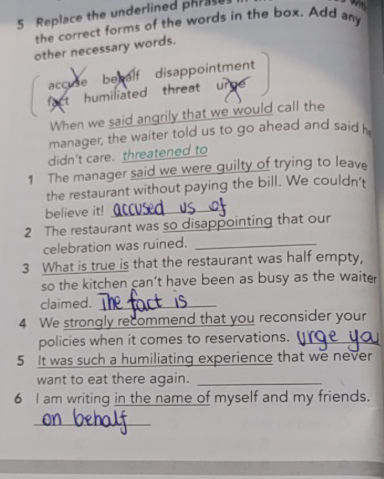 5 Replace the underlined phrases
the correct forms of the words in the box. Add any
other necessary words.
accuse behalf disappointment
fact humiliated threat urge
When we said angrily that we would call the
manager, the waiter told us to go ahead and said
didn't care. threatened to
1 The manager said we were guilty of trying to leave
the restaurant without paying the bill. We couldn't
believe it! accused us of
2 The restaurant was so disappointing that our
celebration was ruined.
3 What is true is that the restaurant was half empty,
so the kitchen can't have been as busy as the waiter
claimed. The fact is
4 We strongly recommend that you reconsider your
policies when it comes to reservations. urge you
5 It was such a humiliating experience that we never
want to eat there again.
6 I am writing in the name of myself and my friends.
on behalf